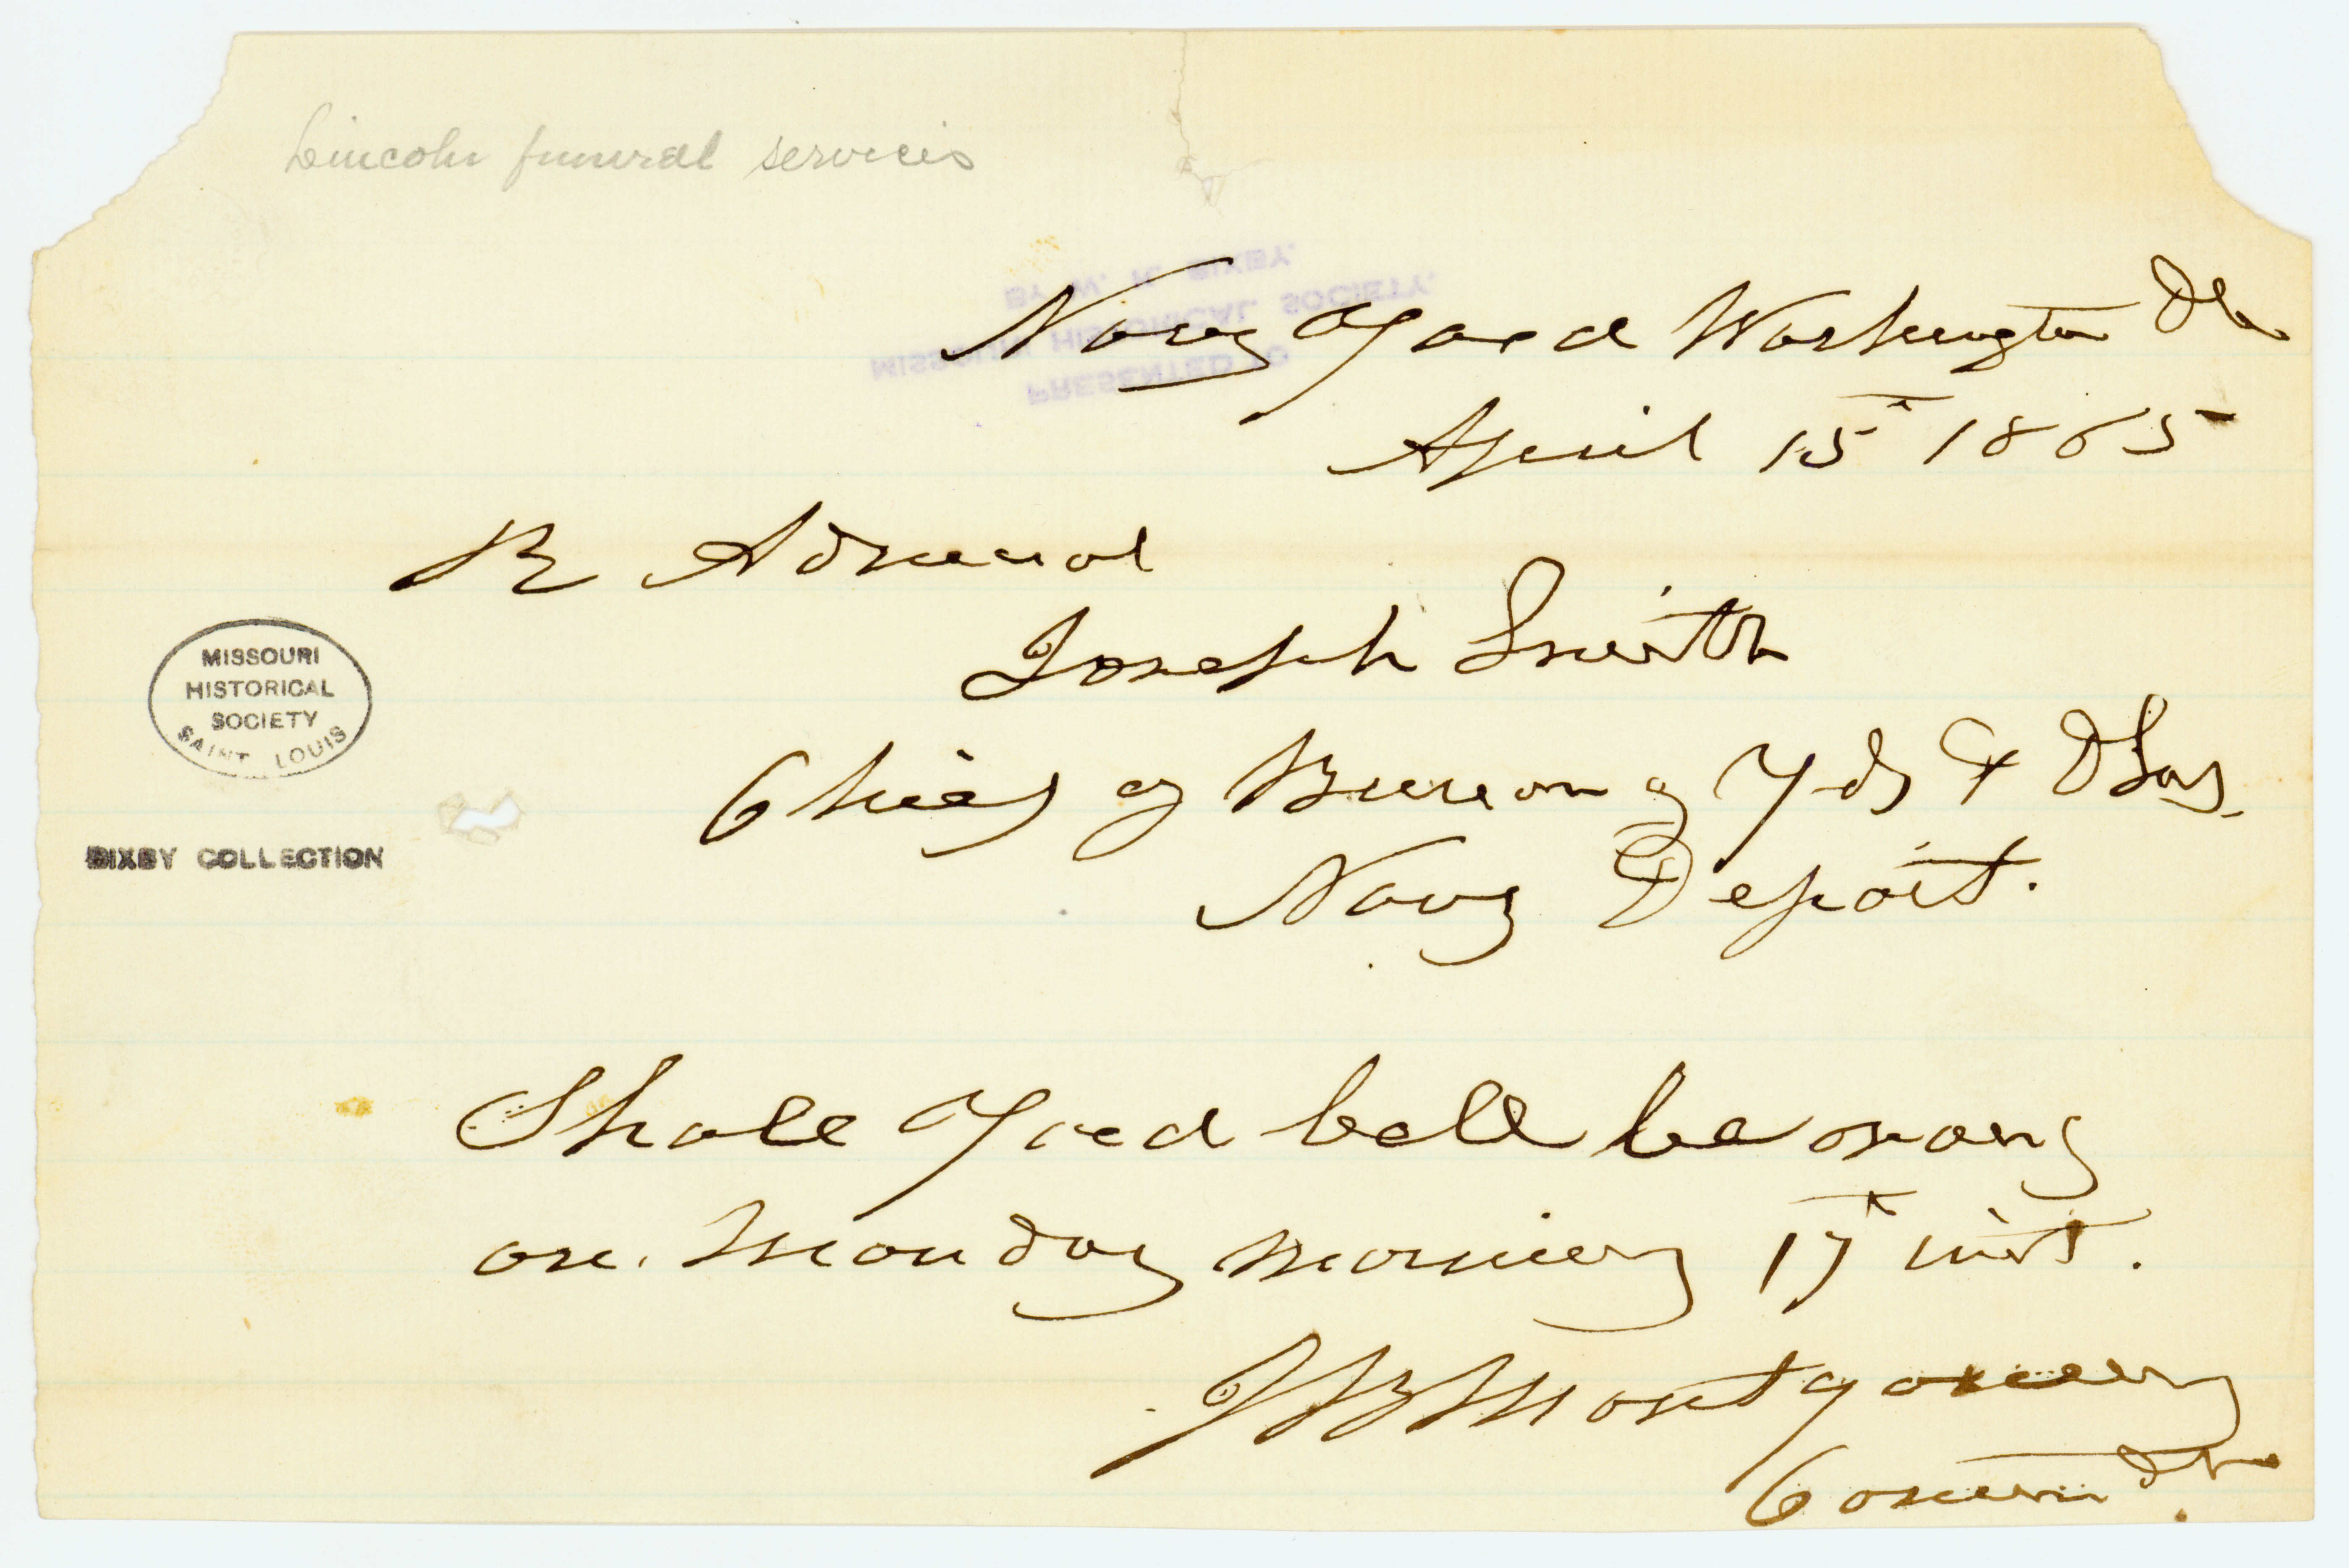 Lincoln funeral services
BY W. K. BIXBY.
MISSOURI HISTORICAL SOCIETY.
PRESENTED TO
Navy Yard Washington DC
April 15th 1865
R Admiral
Joseph Smith
Chief of Bureau of Yds & Dks.
Navy Depart.
MISSOURI
HISTORICAL
SOCIETY
SAINT LOUIS
BIXBY COLLECTION
Shall Yard bell be rang
on Monday morning 17th inst.
JB Montgomery
Commdt.